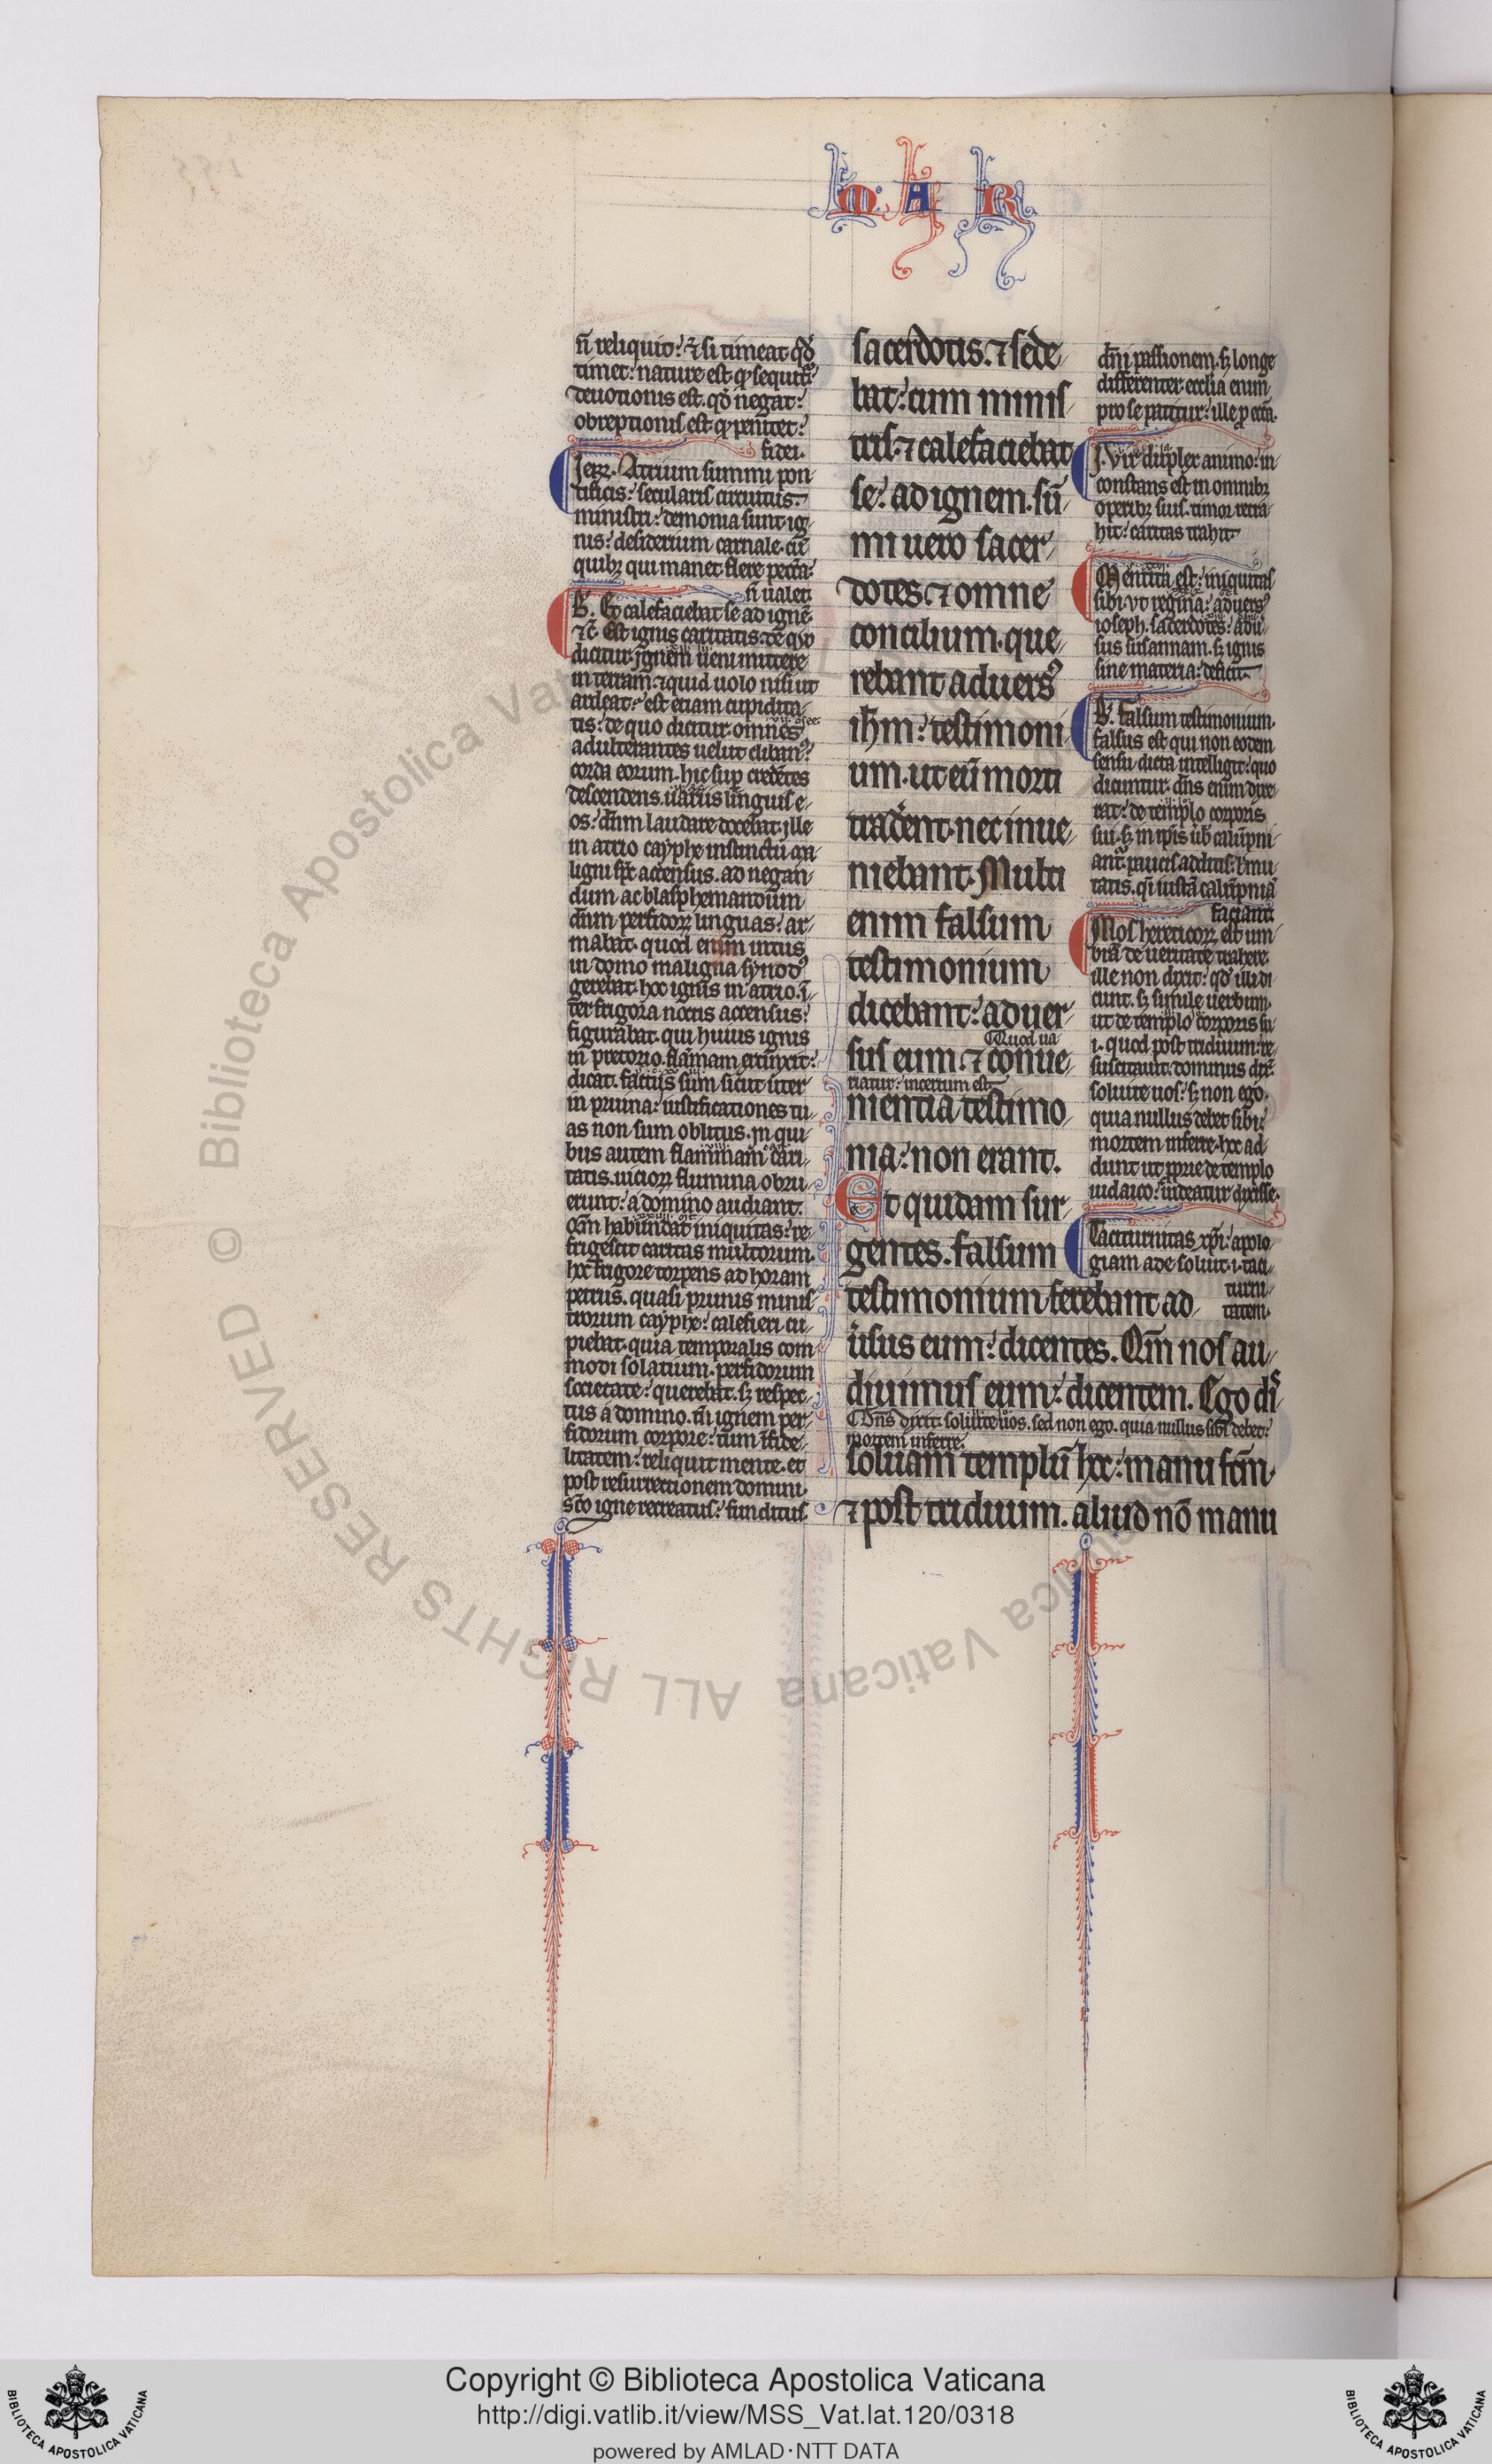 M A R
n̄ reliquit. ⁊ si timeat qd̕
timet: nature est qͥ sequitᷣ
deuotionis est. qd̕ negat:
obreptionis est qͥ penitet:
fidei.
Ieꝝ. Atrium summi pon
tificis: secularis circuitus.
ministri: demonia sunt ig
nis: desiderium carnale. cū
quibꝫ qui manet flere pecc̄a:
n̄ ualet.
B. Et calefaciebat se ad ignē.
⁊c̄. Est ignis caritatis. de quo
dicitur. Ignem ueni mittere
in terram. ⁊ quid uolo nisi ut
ardeat: est etiam cupidita
tis: de quo dicitur. omnes
adulterantes uelut clibanꝰ
corda eorum. hic suꝑ credētes
descendens. uariis linguis e
os: dn̄m laudare docebat. ille
in atrio cayphe instinctu ma
ligni sp̄c accensus. ad negan
dum ac blasphemandum
dn̄m perfidoꝝ linguas: ar
mabat. quod enim intus
in domo maligna synodꝰ
gerebat. hoc ignis in atrio. ī
ter frigora noctis accensus:
figurabat. qui huius ignis
in pretorio. flāmam extinxit:
dicat. factus sum sicut uter
in pruina: iustificationes tu
as non sum oblitus. In qui
bus autem flammam cari
tatis. uicioꝝ flumina obru
erunt: a domino audiant.
Qm̄ habundat iniquitas: re
frigescit caritas multorum.
hoc frigore torpens ad horam
petrus. quasi prunis minis
trorum cayphe: calefieri cu
piebat. quia temporalis com
modi solatium. perfidorum
societate: querebat. sꝫ respec
tus a domino. ignem per
fidorum corpore: tum īfide
litatem: reliquit mente. et
post resurrectionem domini
sc̄o igne recreatus: funditus
sacerdotis. ⁊ sede
bat: cum minis
tris. ⁊ calefaciebat
se: ad ignem. sū
mi uero sacer
dotes. ⁊ omne
concilium. que
rebant aduersꝰ
ih̄m: testimoni
um. ut eū morti
traderent. nec inue
niebant. Multi
enim falsum
testimonium
dicebant: aduer
Quod ua
sus eum. ⁊ conue
riatur: incertum est.
nientia testimo
nia: non erant.
Et quidam sur
gentes. falsum
testimonium ferebant ad
uͥsus eum: dicentes. Qm̄ nos au
diuimus eum: dicentem. Ego di
Dn̄s dixit. soluite uos. sed non ego. quia nullus sibi debet:
mortem inferre.
soluam templū hoc: manu fc̄m
⁊ post triduum. aliud nō manu
dn̄i passionem. sꝫ longe
differenter. ecclia enim
pro se patitur: ille ꝓ ecc̄a.
J. Vir duplex animo: in
constans est in omnibꝫ
operibꝫ suis. timor retra
hit: caritas trahit
Mentita est: iniquitas
sibi. vt regina: aduersꝰ
ioseph. sacerdotes: aduͥ
sus susannam. sꝫ ignis
sine materia: deficit
B. Falsum testimonium.
falsus est qui non eodem
sensu dicta intelligit: quo
dicuntur. dn̄s enim dixe
rat: de templo corporis
sui. sꝫ in ip̄is ūb calūpni
antᷣ. paucis additis. ł mu
tatis. q̄i iustā calūpniā
faciant.
Mos hereticoꝝ est um
bra de ueritate trahere.
ille non dixit: qd̕ illi di
cunt. sꝫ simile uerbum.
ut de templo corporis sui
i. quod post triduum: re
suscitauit. dominus dix̄.
soluite uos: sꝫ non ego.
quia nullus debet sibi:
mortem inferre. hoc ad
dunt ut ꝓprie de templo
iudaico: uideatur dixisse.
Taciturnitas xp̄i: apolo
giam ade soluit. i. taci
turni
tatem.
Copyright © Biblioteca Apostolica Vaticana
http://digi.vatlib.it/view/MSS_Vat.lat.120/0318
powered by AMLAD·NTT DATA
BIBLIOTECA APOSTOLICA VATICANA
BIBLIOTECA APOSTOLICA VATICANA
© Biblioteca Apostolica Vaticana ALL RIGHTS RESERVED